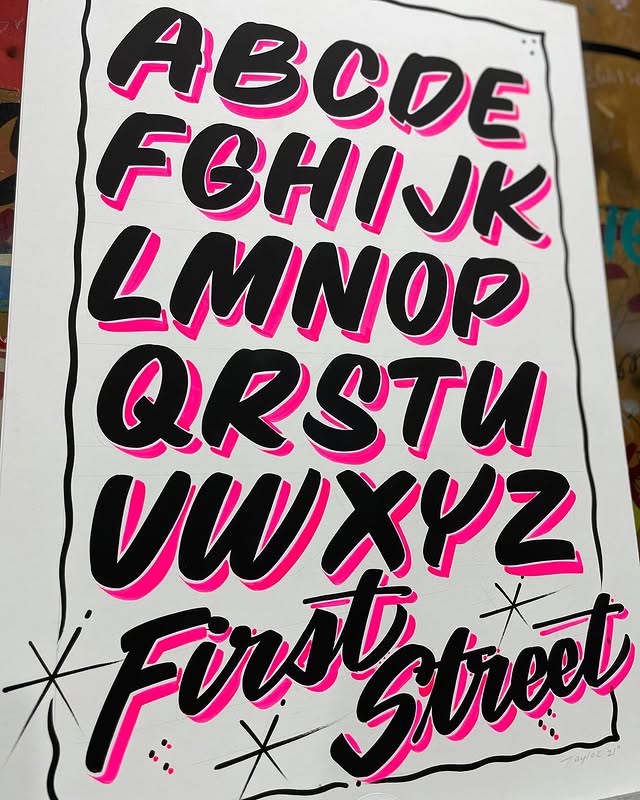 ABCDE
FGHIJK
LMNOP
QRSTU
VWXYZ
First
Street
Taylor 21"